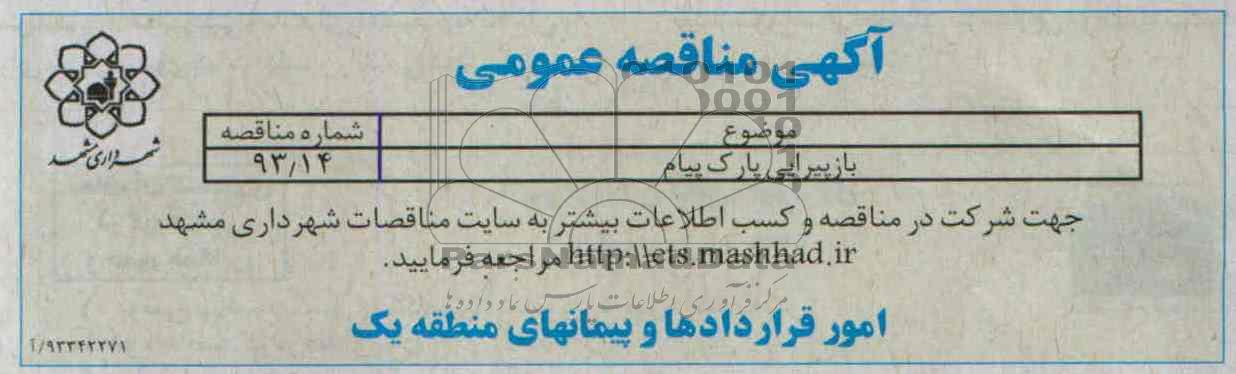 آگهی مناقصه عمومی
شهرداری مشهد
موضوع شماره مناقصه
بازپیرایی پارک پیام ۹۳/۱۴
جهت شرکت در مناقصه و کسب اطلاعات بیشتر به سایت مناقصات شهرداری مشهد
http:\\ets.mashhad.ir مراجعه فرمایید.
ParsNamadData
مرکز فرآوری اطلاعات پارس نماد داده ها
امور قراردادها و پیمانهای منطقه یک
۹۳۳۴۲۲۷۱/آ